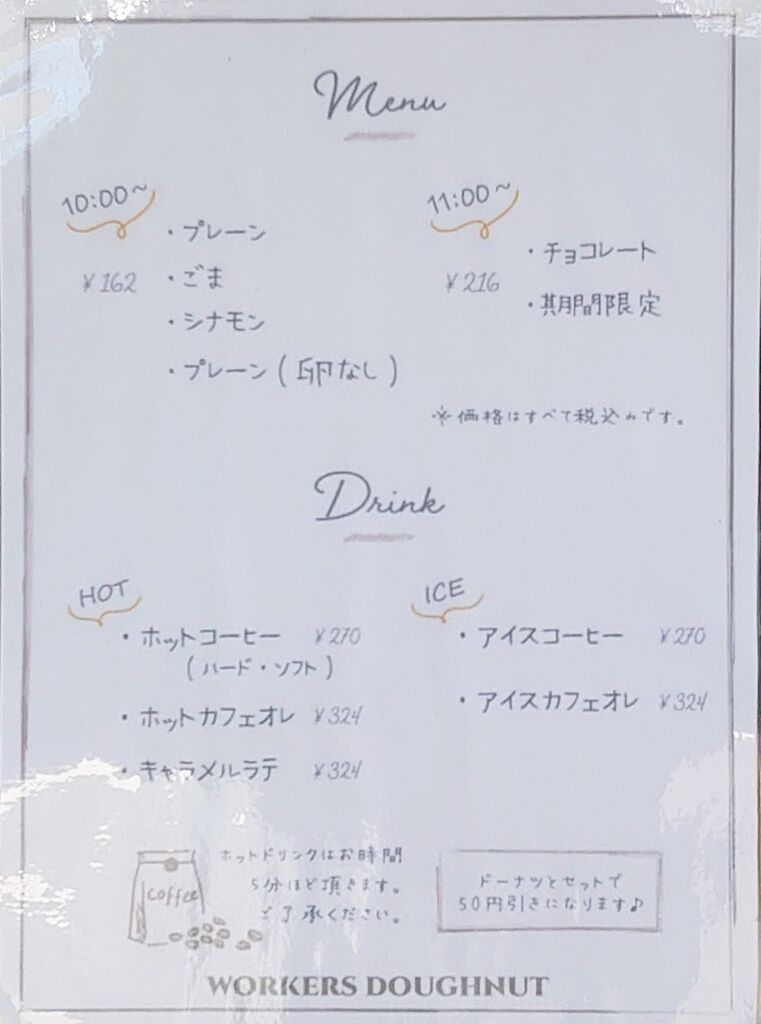 Menu
10:00~
¥162
・プレーン
・ごま
・シナモン
・プレーン(卵なし)
11:00~
¥216
・チョコレート
・期間限定
※価格はすべて税込みです。
Drink
HOT
・ホットコーヒー ¥270
(ハード・ソフト)
・ホットカフェオレ ¥324
・キャラメルラテ ¥324
ICE
・アイスコーヒー ¥270
・アイスカフェオレ ¥324
coffee
ホットドリンクはお時間
5分ほど頂きます。
ご了承ください。
ドーナツとセットで
50円引きになります♪
WORKERS DOUGHNUT